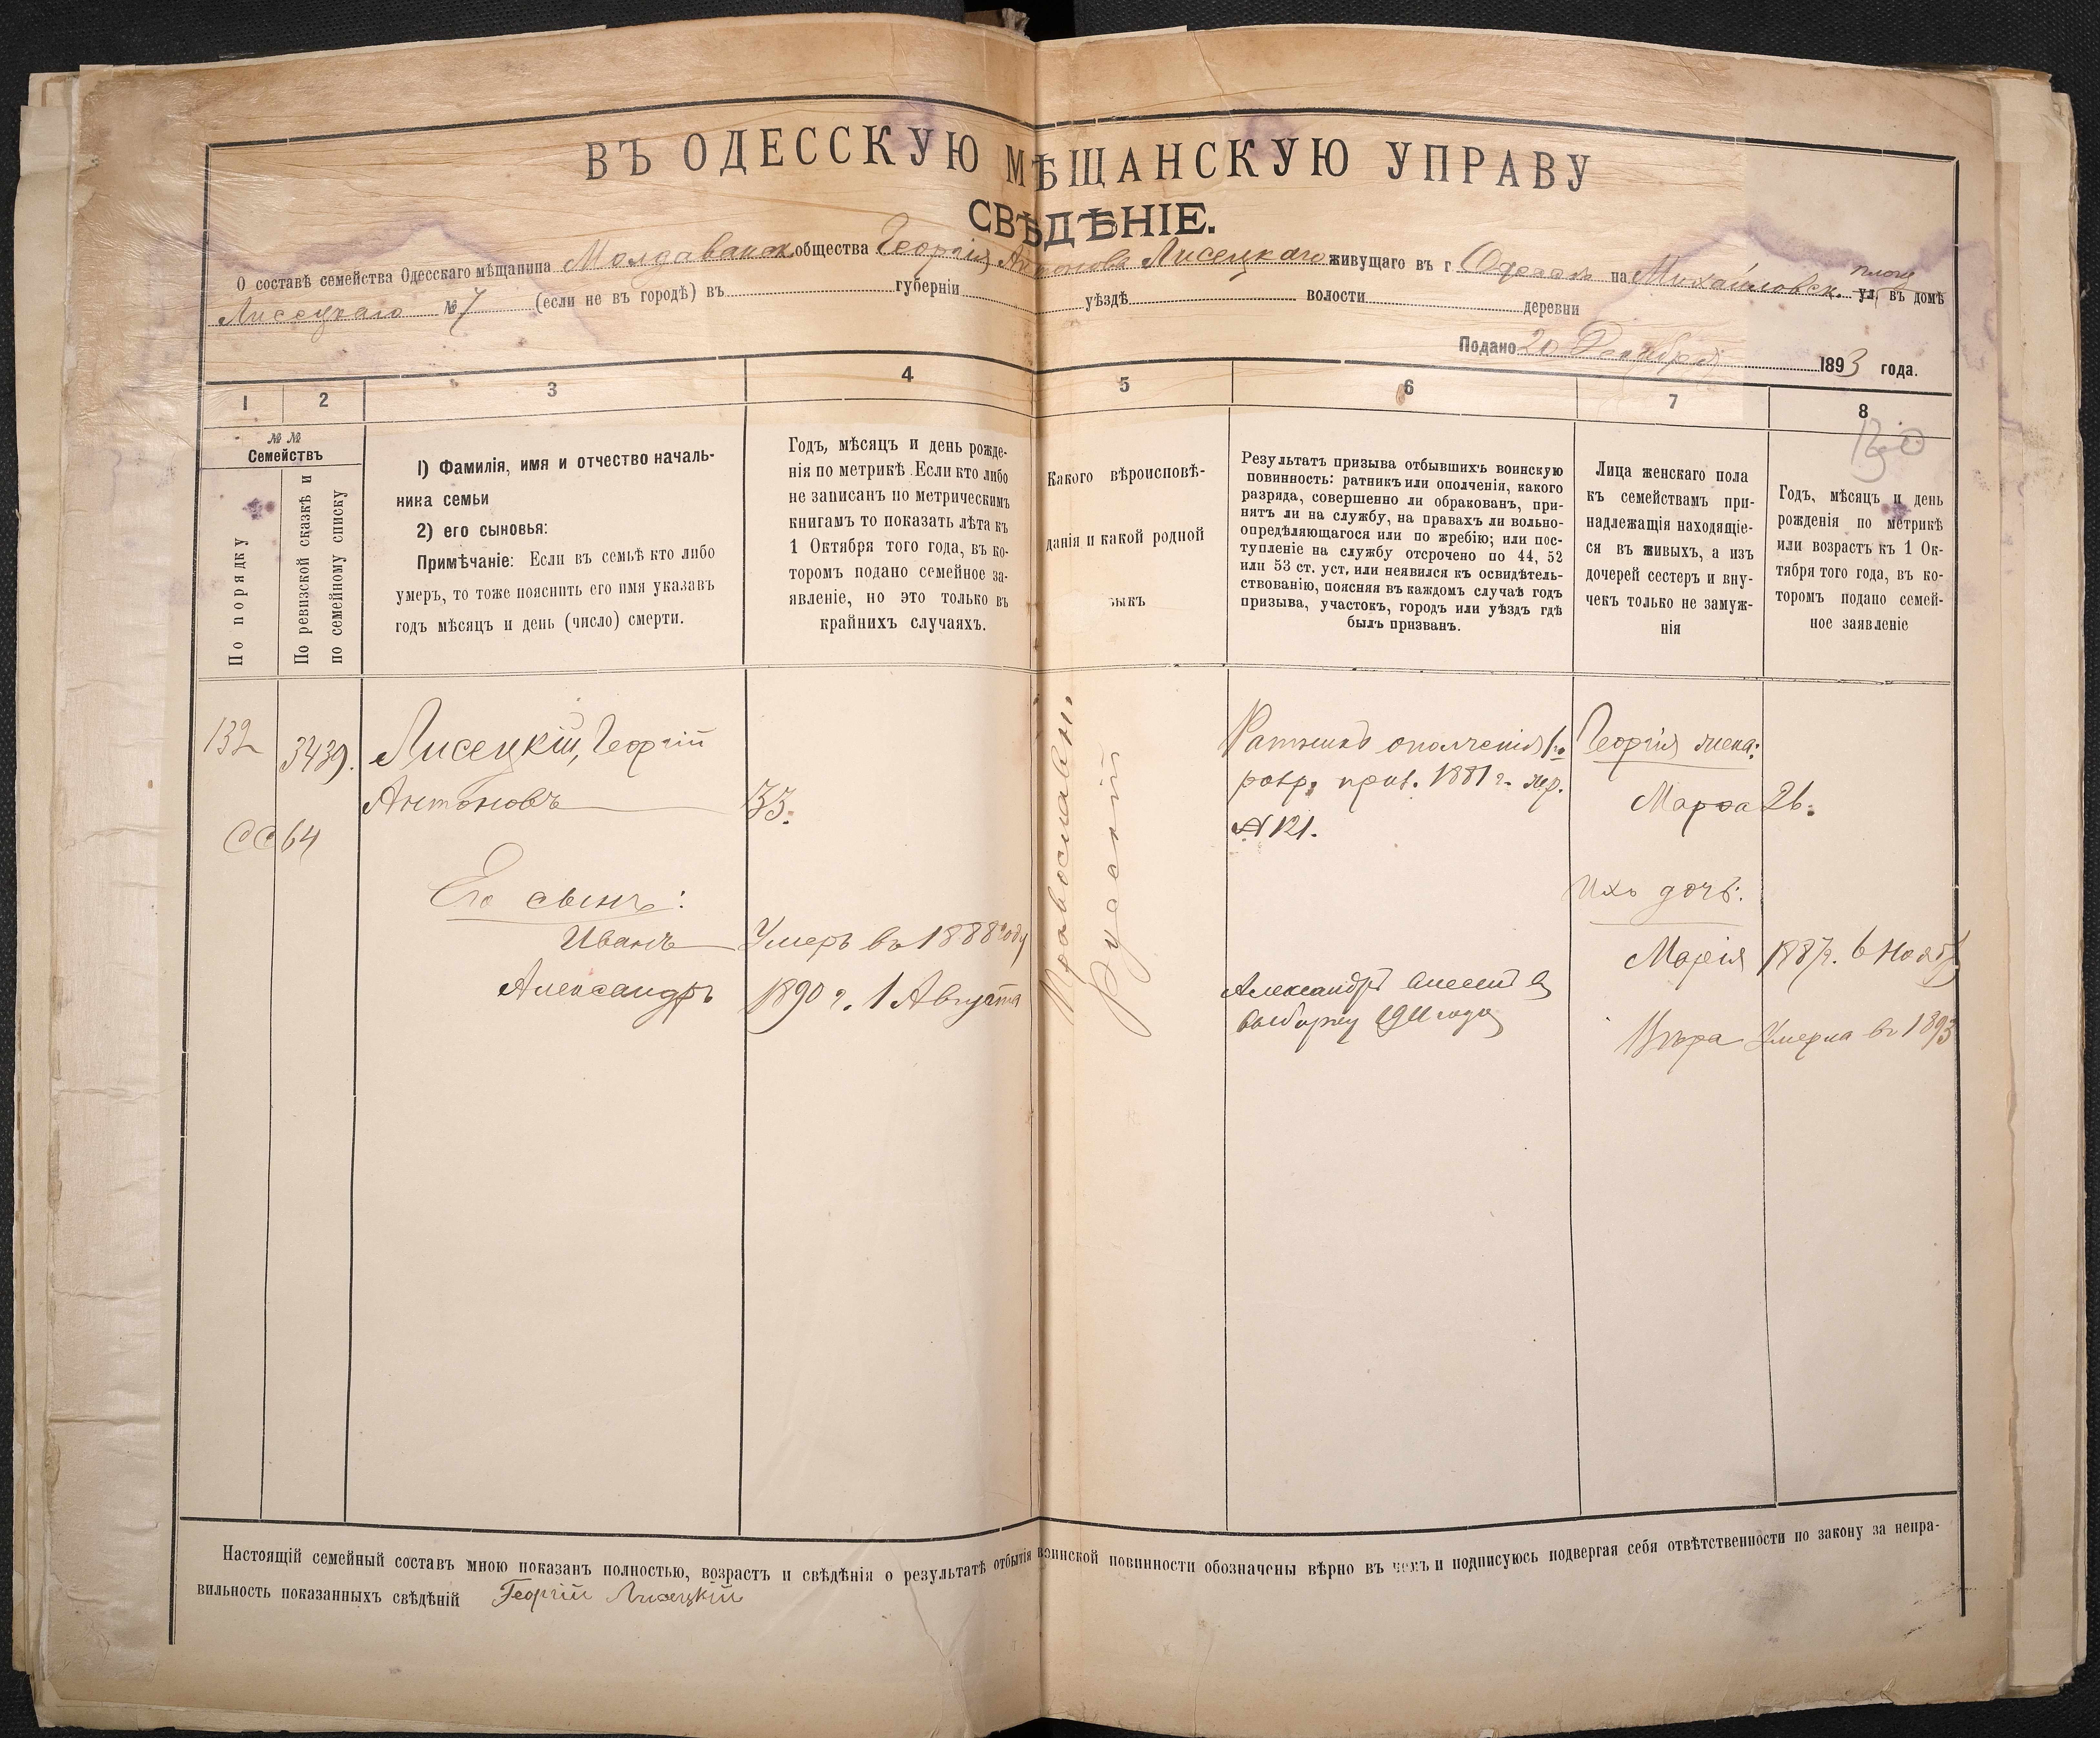 ВЪ ОДЕССКУЮ МѢЩАНСКУЮ УПРАВУ
СВѢДѢНІЕ.
О составѣ семейства Одесскаго мѣщанина Молдаванск общества Георгія Антонова Лисецкаго живущаго въ г Одессѣ на Михайловск. площ ул. въ домѣ
Лисецкаго № 7 (если не въ городѣ) въ губерніи уѣздѣ волости деревни
Подано 20 Декабря 1893 года.
1 2 3 4 5 6 7 8
130
№ №
Семействъ
По порядку
По ревизской сказкѣ и
по семейному списку
1) Фамилія, имя и отчество началь-
ника семьи
2) его сыновья:
Примѣчаніе: Если въ семьѣ кто либо
умеръ, то тоже пояснить его имя указавъ
годъ мѣсяцъ и день (число) смерти.
Годъ, мѣсяцъ и день рожде-
нія по метрикѣ. Если кто либо
не записанъ по метрическимъ
книгамъ то показать лѣта къ
1 Октября того года, въ ко-
торомъ подано семейное за-
явленіе, но это только въ
крайнихъ случаяхъ.
Какого вѣроисповѣ-
данія и какой родной
зыкъ
Результатъ призыва отбывшихъ воинскую
повинность: ратникъ или ополченія, какого
разряда, совершенно ли обракованъ, при-
нятъ ли на службу, на правахъ ли вольно-
опредѣляющагося или по жребію; или пос-
тупленіе на службу отсрочено по 44, 52
или 53 ст. уст. или неявился къ освидѣтель-
ствованію, поясняя въ каждомъ случаѣ годъ
призыва, участокъ, городъ или уѣздъ гдѣ
былъ призванъ.
Лица женскаго пола
къ семействамъ при-
надлежащія находящіе-
ся въ живыхъ, а изъ
дочерей сестеръ и вну-
чекъ только не замуж-
нія
Годъ, мѣсяцъ и день
рожденія по метрикѣ
или возрастъ къ 1 Ок-
тября того года, въ ко-
торомъ подано семей-
ное заявленіе
132 3439. Лисецкій, Георгій
Антоновъ 33.
64
Его сынъ:
Иванъ Умеръ въ 1888 году
Александръ 1890 г. 1 Августа
Православн.
Русскій
Ратникъ ополченія 1го
разр. приз. 1881 г. жер.
№ 121.
Александръ внесенъ въ
выборку 1911 года
Георгія жена:
Марѳа 26.
Ихъ дочь:
Марія 1887г. 6 Ноябр
Вѣра Умерла въ 1893
Настоящій семейный составъ мною показанъ полностью, возрастъ и свѣдѣнія о результатѣ отбытія воинской повинности обозначены вѣрно въ чемъ и подписуюсь подвергая себя отвѣтственности по закону за непра-
вильность показанныхъ свѣдѣній Георгій Лисецкій